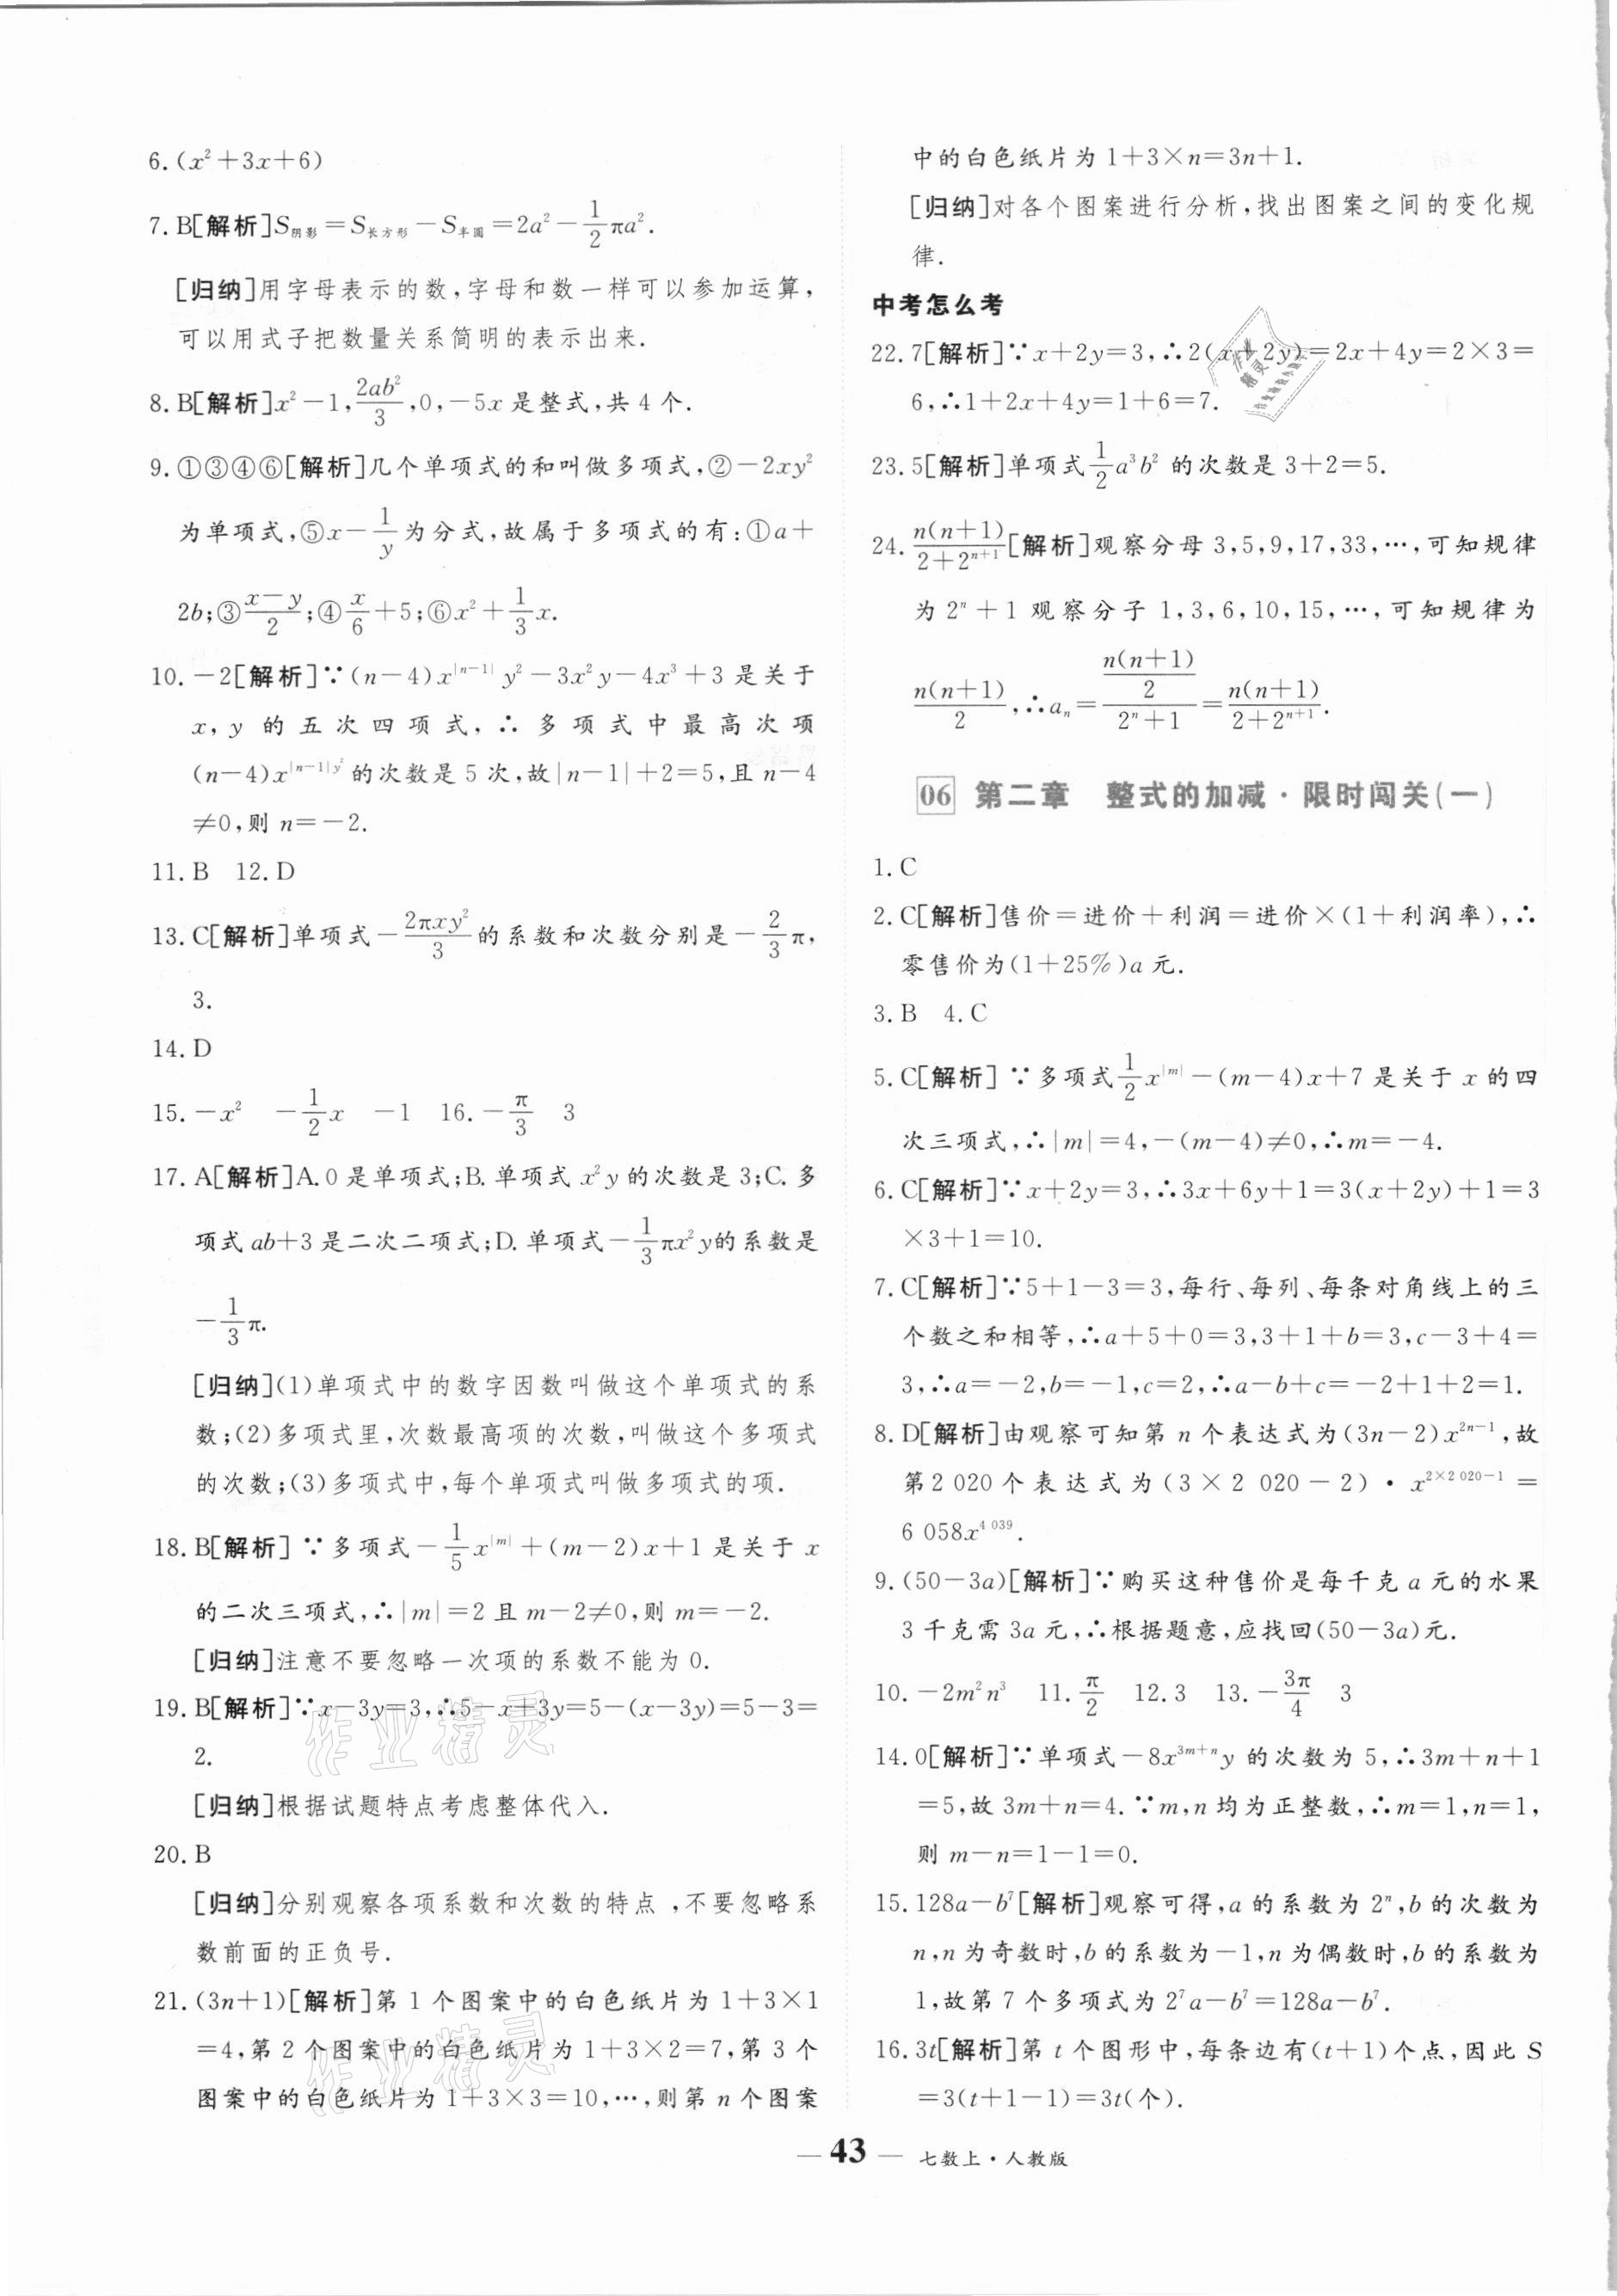 6. (x²+3x+6)
7. B[解析]S阴影=S长方形-S半圆=2a²-1/2πa².
[归纳]用字母表示的数,字母和数一样可以参加运算,
可以用式子把数量关系简明的表示出来.
8. B[解析]x²-1,2ab²/3,0,-5x是整式,共4个.
9. ①③④⑥[解析]几个单项式的和叫做多项式,②-2xy²
为单项式,⑤x-1/y为分式,故属于多项式的有:①a+
2b;③(x-y)/2;④x/6+5;⑥x²+1/3x.
10. -2[解析]∵(n-4)x^|n-1| y²-3x²y-4x³+3是关于
x,y的五次四项式,∴多项式中最高次项
(n-4)x^|n-1|y²的次数是5次,故|n-1|+2=5,且n-4
≠0,则n=-2.
11. B 12. D
13. C[解析]单项式-2πxy²/3的系数和次数分别是-2/3π,
3.
14. D
15. -x² -1/2x -1 16. -π/3 3
17. A[解析]A.0是单项式;B.单项式x²y的次数是3;C.多
项式ab+3是二次二项式;D.单项式-1/3πx²y的系数是
-1/3π.
[归纳](1)单项式中的数字因数叫做这个单项式的系
数;(2)多项式里,次数最高项的次数,叫做这个多项式
的次数;(3)多项式中,每个单项式叫做多项式的项.
18. B[解析]∵多项式-1/5x^|m|+(m-2)x+1是关于x
的二次三项式,∴|m|=2且m-2≠0,则m=-2.
[归纳]注意不要忽略一次项的系数不能为0.
19. B[解析]∵x-3y=3,∴5-x+3y=5-(x-3y)=5-3=
2.
[归纳]根据试题特点考虑整体代入.
20. B
[归纳]分别观察各项系数和次数的特点,不要忽略系
数前面的正负号.
21. (3n+1)[解析]第1个图案中的白色纸片为1+3×1
=4,第2个图案中的白色纸片为1+3×2=7,第3个
图案中的白色纸片为1+3×3=10,…,则第n个图案
中的白色纸片为1+3×n=3n+1.
[归纳]对各个图案进行分析,找出图案之间的变化规
律.
中考怎么考
22. 7[解析]∵x+2y=3,∴2(x+2y)=2x+4y=2×3=
6,∴1+2x+4y=1+6=7.
23. 5[解析]单项式1/2a³b²的次数是3+2=5.
24. n(n+1)/(2+2^(n+1))[解析]观察分母3,5,9,17,33,…,可知规律
为2ⁿ+1观察分子1,3,6,10,15,…,可知规律为
n(n+1)/2,∴aₙ=(n(n+1)/2)/(2ⁿ+1)=n(n+1)/(2+2^(n+1)).
06 第二章 整式的加减·限时闯关(一)
1. C
2. C[解析]售价=进价+利润=进价×(1+利润率),∴
零售价为(1+25%)a元.
3. B 4. C
5. C[解析]∵多项式1/2x^|m|-(m-4)x+7是关于x的四
次三项式,∴|m|=4,-(m-4)≠0,∴m=-4.
6. C[解析]∵x+2y=3,∴3x+6y+1=3(x+2y)+1=3
×3+1=10.
7. C[解析]∵5+1-3=3,每行、每列、每条对角线上的三
个数之和相等,∴a+5+0=3,3+1+b=3,c-3+4=
3,∴a=-2,b=-1,c=2,∴a-b+c=-2+1+2=1.
8. D[解析]由观察可知第n个表达式为(3n-2)x^(2n-1),故
第2 020个表达式为(3×2 020-2)·x^(2×2 020-1)=
6 058x^(4 039).
9. (50-3a)[解析]∵购买这种售价是每千克a元的水果
3千克需3a元,∴根据题意,应找回(50-3a)元.
10. -2m²n³ 11. π/2 12. 3 13. -3π/4 3
14. 0[解析]∵单项式-8x^(3m+n)y的次数为5,∴3m+n+1
=5,故3m+n=4.∵m,n均为正整数,∴m=1,n=1,
则m-n=1-1=0.
15. 128a-b⁷[解析]观察可得,a的系数为2ⁿ,b的次数为
n,n为奇数时,b的系数为-1,n为偶数时,b的系数为
1,故第7个多项式为2⁷a-b⁷=128a-b⁷.
16. 3t[解析]第t个图形中,每条边有(t+1)个点,因此S
=3(t+1-1)=3t(个).
— 43 — 七数上·人教版
作业精灵
作业精灵